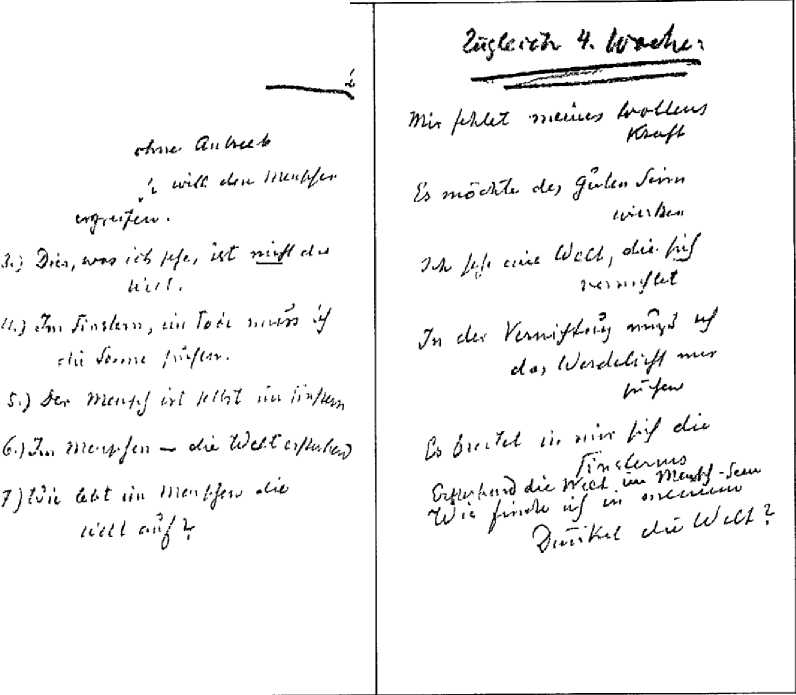 ohne Antrieb
will den Menschen
ergreifen.
3.) Dies, was ich sehe, ist nicht die
Welt.
4.) Im Finstern, im Tode muss ich
die Sonne suchen.
5.) Der Mensch ist selbst im Finstern
6.) Im Menschen – die Welt ersterbend
7) Wie lebt im Menschen die
Welt auf?
Zugleich 4. Woche:
Mir fehlet meines Wollens
Kraft
Es möchte des Guten Sinn
wirken
Ich sehe eine Welt, die sich
vernichtet
In der Vernichtung muss ich
das Werdelicht mir
suchen
Es breitet in mir sich die
Finsternis
Ersterbend die Welt im Mensch-Sein
Wie finde ich in meinem
Dunkel die Welt?